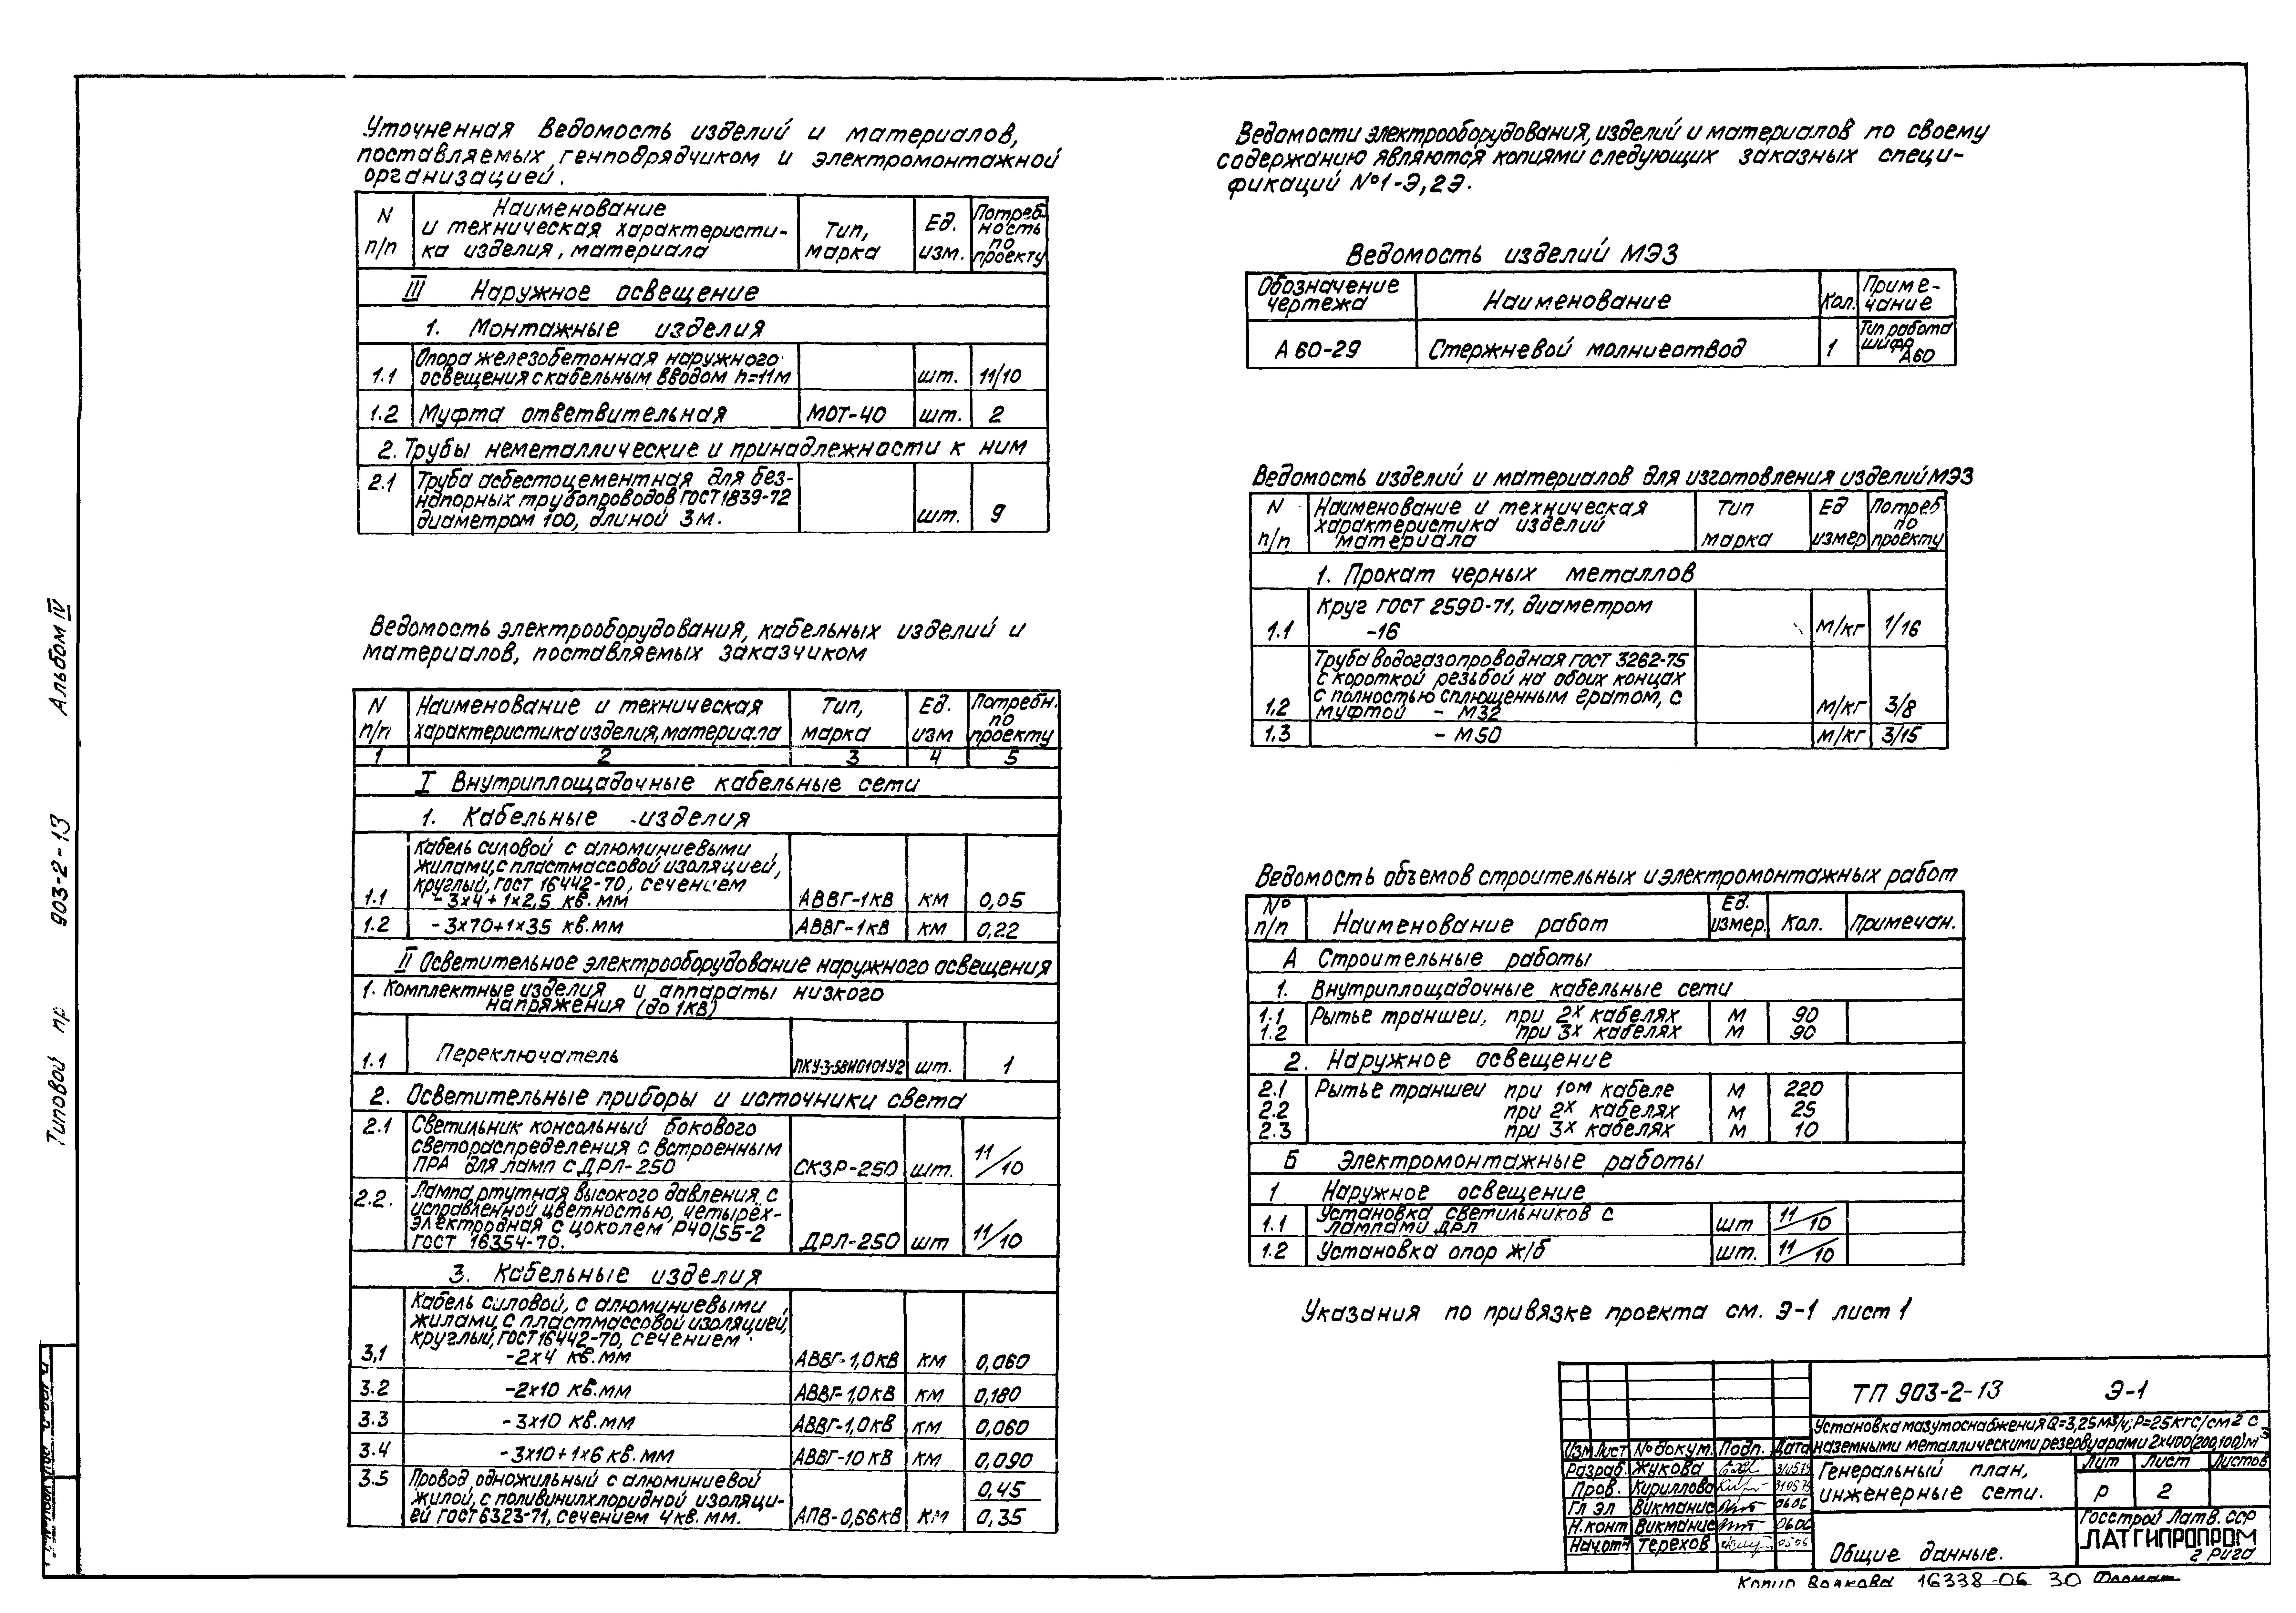 Уточненная ведомость изделий и материалов,
поставляемых генподрядчиком и электромонтажной
организацией.
N п/п | Наименование и техническая характеристи-ка изделия, материала | Тип, марка | Ед. изм. | Потреб-ность по проекту
III Наружное освещение
1. Монтажные изделия
1.1 Опора железобетонная наружного
освещения с кабельным вводом h=11м шт. 11/10
1.2 Муфта ответвительная МОТ-40 шт. 2
2. Трубы неметаллические и принадлежности к ним
2.1 Труба асбестоцементная для без-
напорных трубопроводов ГОСТ 1839-72
диаметром 100, длиной 3м. шт. 9
Ведомость электрооборудования, кабельных изделий и
материалов, поставляемых заказчиком
N п/п | Наименование и техническая характеристика изделия, материала | Тип, марка | Ед. изм | Потребн. по проекту
1 2 3 4 5
I Внутриплощадочные кабельные сети
1. Кабельные изделия
Кабель силовой с алюминиевыми
жилами, с пластмассовой изоляцией,
круглый, ГОСТ 16442-70, сечением
1.1 - 3х4+1х2,5 кв.мм АВВГ-1кВ км 0,05
1.2 - 3х70+1х35 кв.мм АВВГ-1кВ км 0,22
II Осветительное электрооборудование наружного освещения
1. Комплектные изделия и аппараты низкого
напряжения (до 1кВ)
1.1 Переключатель ПКУ-3-58И0101У2 шт. 1
2. Осветительные приборы и источники света
2.1 Светильник консольный бокового
светораспределения с встроенным
ПРА для ламп с ДРЛ-250 СКЗР-250 шт. 11/10
2.2. Лампа ртутная высокого давления с
исправленной цветностью, четырёх-
электродная с цоколем Р40/55-2
ГОСТ 16354-70. ДРЛ-250 шт 11/10
3. Кабельные изделия
Кабель силовой, с алюминиевыми
жилами, с пластмассовой изоляцией,
круглый, ГОСТ 16442-70, сечением
3,1 -2х4 кв.мм АВВГ-1,0кВ км 0,060
3.2 -2х10 кв.мм АВВГ-1,0кВ км 0,180
3.3 -3х10 кв.мм АВВГ-1,0кВ км 0,060
3.4 -3х10+1х6 кв.мм АВВГ-10кВ км 0,090
3.5 Провод одножильный с алюминиевой
жилой, с поливинилхлоридной изоляци-
ей ГОСТ 6323-71, сечением 4кв.мм. АПВ-0,66кВ км 0,45 0,35
Ведомости электрооборудования, изделий и материалов по своему
содержанию являются копиями следующих заказных специ-
фикаций №1-Э, 2Э.
Ведомость изделий МЭЗ
Обозначение чертежа | Наименование | Кол. | Приме-чание
А 60-29 Стержневой молниеотвод 1 Тип работа шифр А60
Ведомость изделий и материалов для изготовления изделий МЭЗ
N п/п | Наименование и техническая характеристика изделий материала | Тип марка | Ед измер | Потреб по проекту
1. Прокат черных металлов
Круг ГОСТ 2590-71, диаметром
1.1 -16 м/кг 1/16
Труба водогазопроводная ГОСТ 3262-75
с короткой резьбой на обоих концах
с полностью сплющенным гратом, с
1.2 муфтой - М32 м/кг 3/8
1.3 - М50 м/кг 3/15
Ведомость объемов строительных и электромонтажных работ
№ п/п | Наименование работ | Ед. измер. | Кол. | Примечан.
А Строительные работы
1. Внутриплощадочные кабельные сети
1.1 Рытье траншеи, при 2х кабелях м 90
1.2 при 3х кабелях м 90
2. Наружное освещение
2.1 Рытье траншеи при 1ом кабеле м 220
2.2 при 2х кабелях м 25
2.3 при 3х кабелях м 10
Б Электромонтажные работы
1 Наружное освещение
1.1 Установка светильников с
лампами ДРЛ шт 11/10
1.2 Установка опор ж/б шт. 11/10
Указания по привязке проекта см. Э-1 лист 1
Типовой пр 903-2-13 Альбом IV
ТП 903-2-13 Э-1
Установка мазутоснабжения Q=3,25м3/ч; Р=25кгс/см2 с
наземными металлическими резервуарами 2х400(200,100)м3
Изм Лист № докум. Подп. Дата
Разраб. Жукова 310579
Пров. Кириллова 310579
Гл эл Викмание 0606
Н.конт Викмание 0606
Нач.отд Терехов 0506
Генеральный план,
инженерные сети.
Лит Лист Листов
Р 2
Общие данные.
Госстрой Латв. ССР
ЛАТГИПРОПРОМ
г Рига
Копир Волкова 16338-06 30 Формат